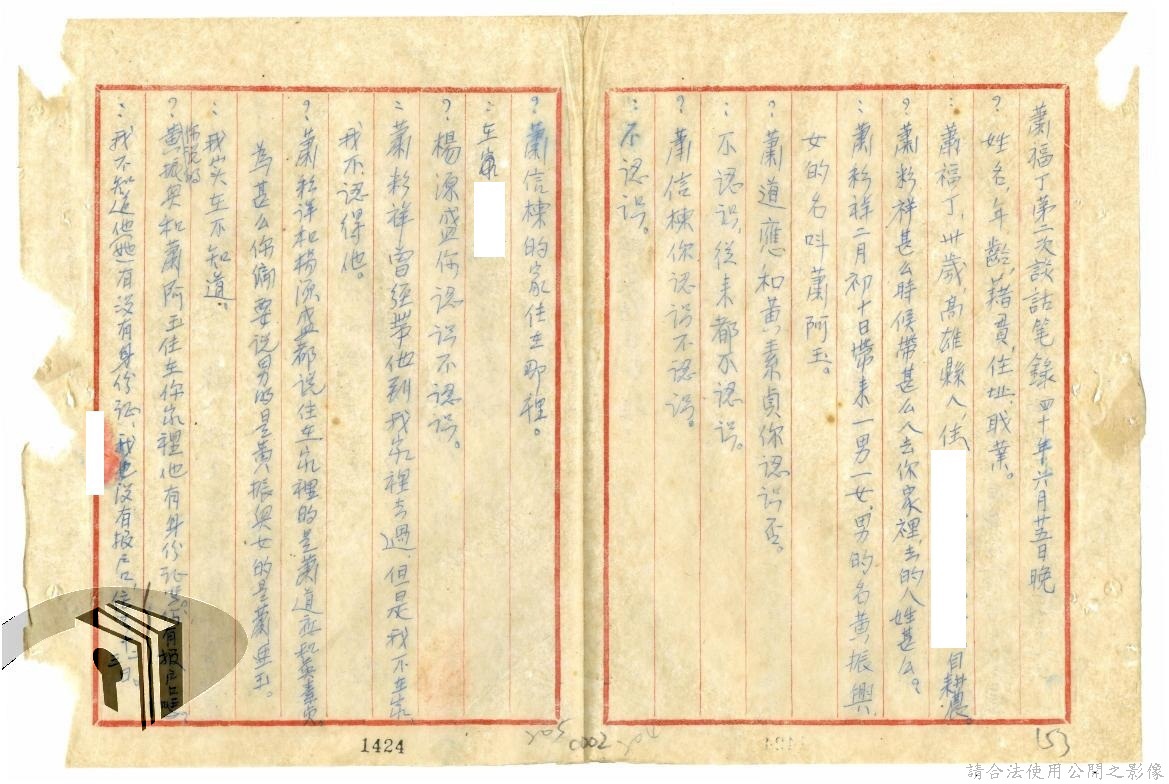 蕭福丁第二次談話笔錄四十年六月廿五日晚
？姓名，年齡，藉貫，住址，职業。
：蕭福丁，卅歲高雄縣人，住 自耕農。
？蕭彩祥甚么時候帶甚么人去你家裡，去的人姓甚么？
：蕭彩祥二月初十日帶来一男一女，男的名黄振興，
女的名叫蕭阿玉。
？蕭道應和黄素貞你認识否。
：不認识，從来都不認识。
？蕭信棟你認识不認识。
：不認识。
？蕭信棟的家住在那裡。
：在
？楊源盛你認识不認识。
：蕭彩祥曾經帶他到我家裡去過，但是我不在家，
我不認得他。
？蕭彩祥和楊源盛都说住在家裡的是蕭道應和黄素貞
為甚么你偏要说男的是黄振興女的是蕭亜玉。
：我实在不知道。
？你说的黄振興和蕭阿玉住在你家裡他有身份证有报户口
：我不知道他她有没有身份证，我也没有报户口，住
153
205
0002
204
1424
請合法使用公開之影像